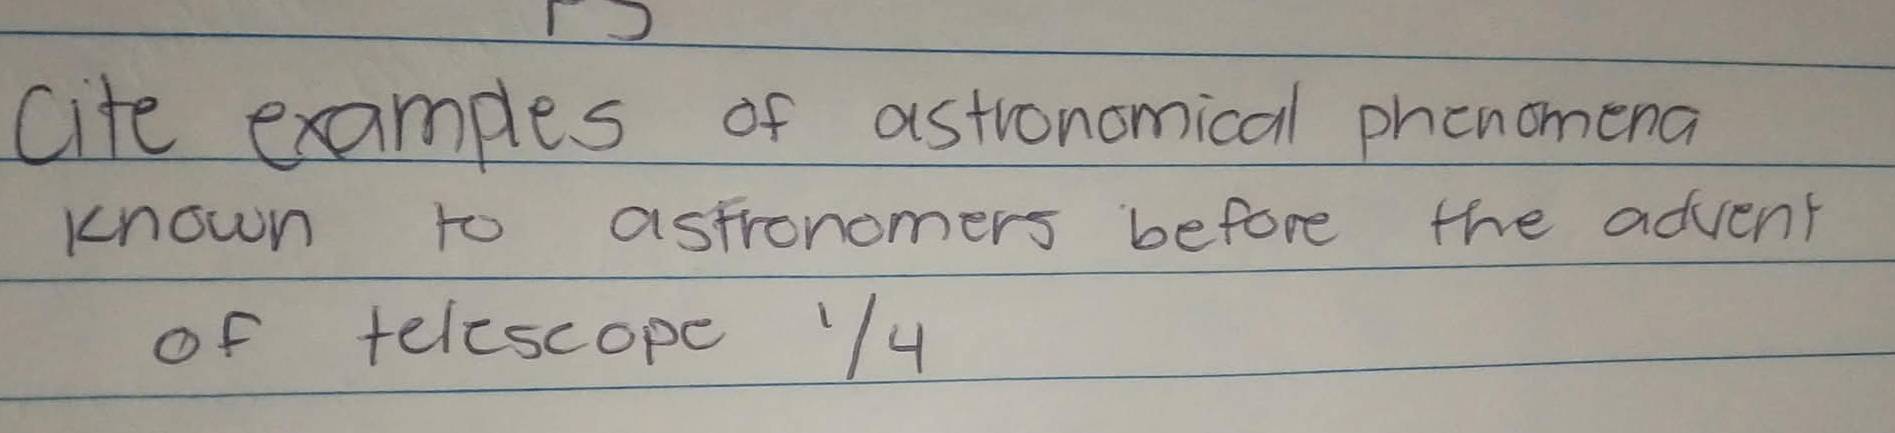 Cite examples of astronomical phenomena
known to astronomers before the advent
of telescope 1/4